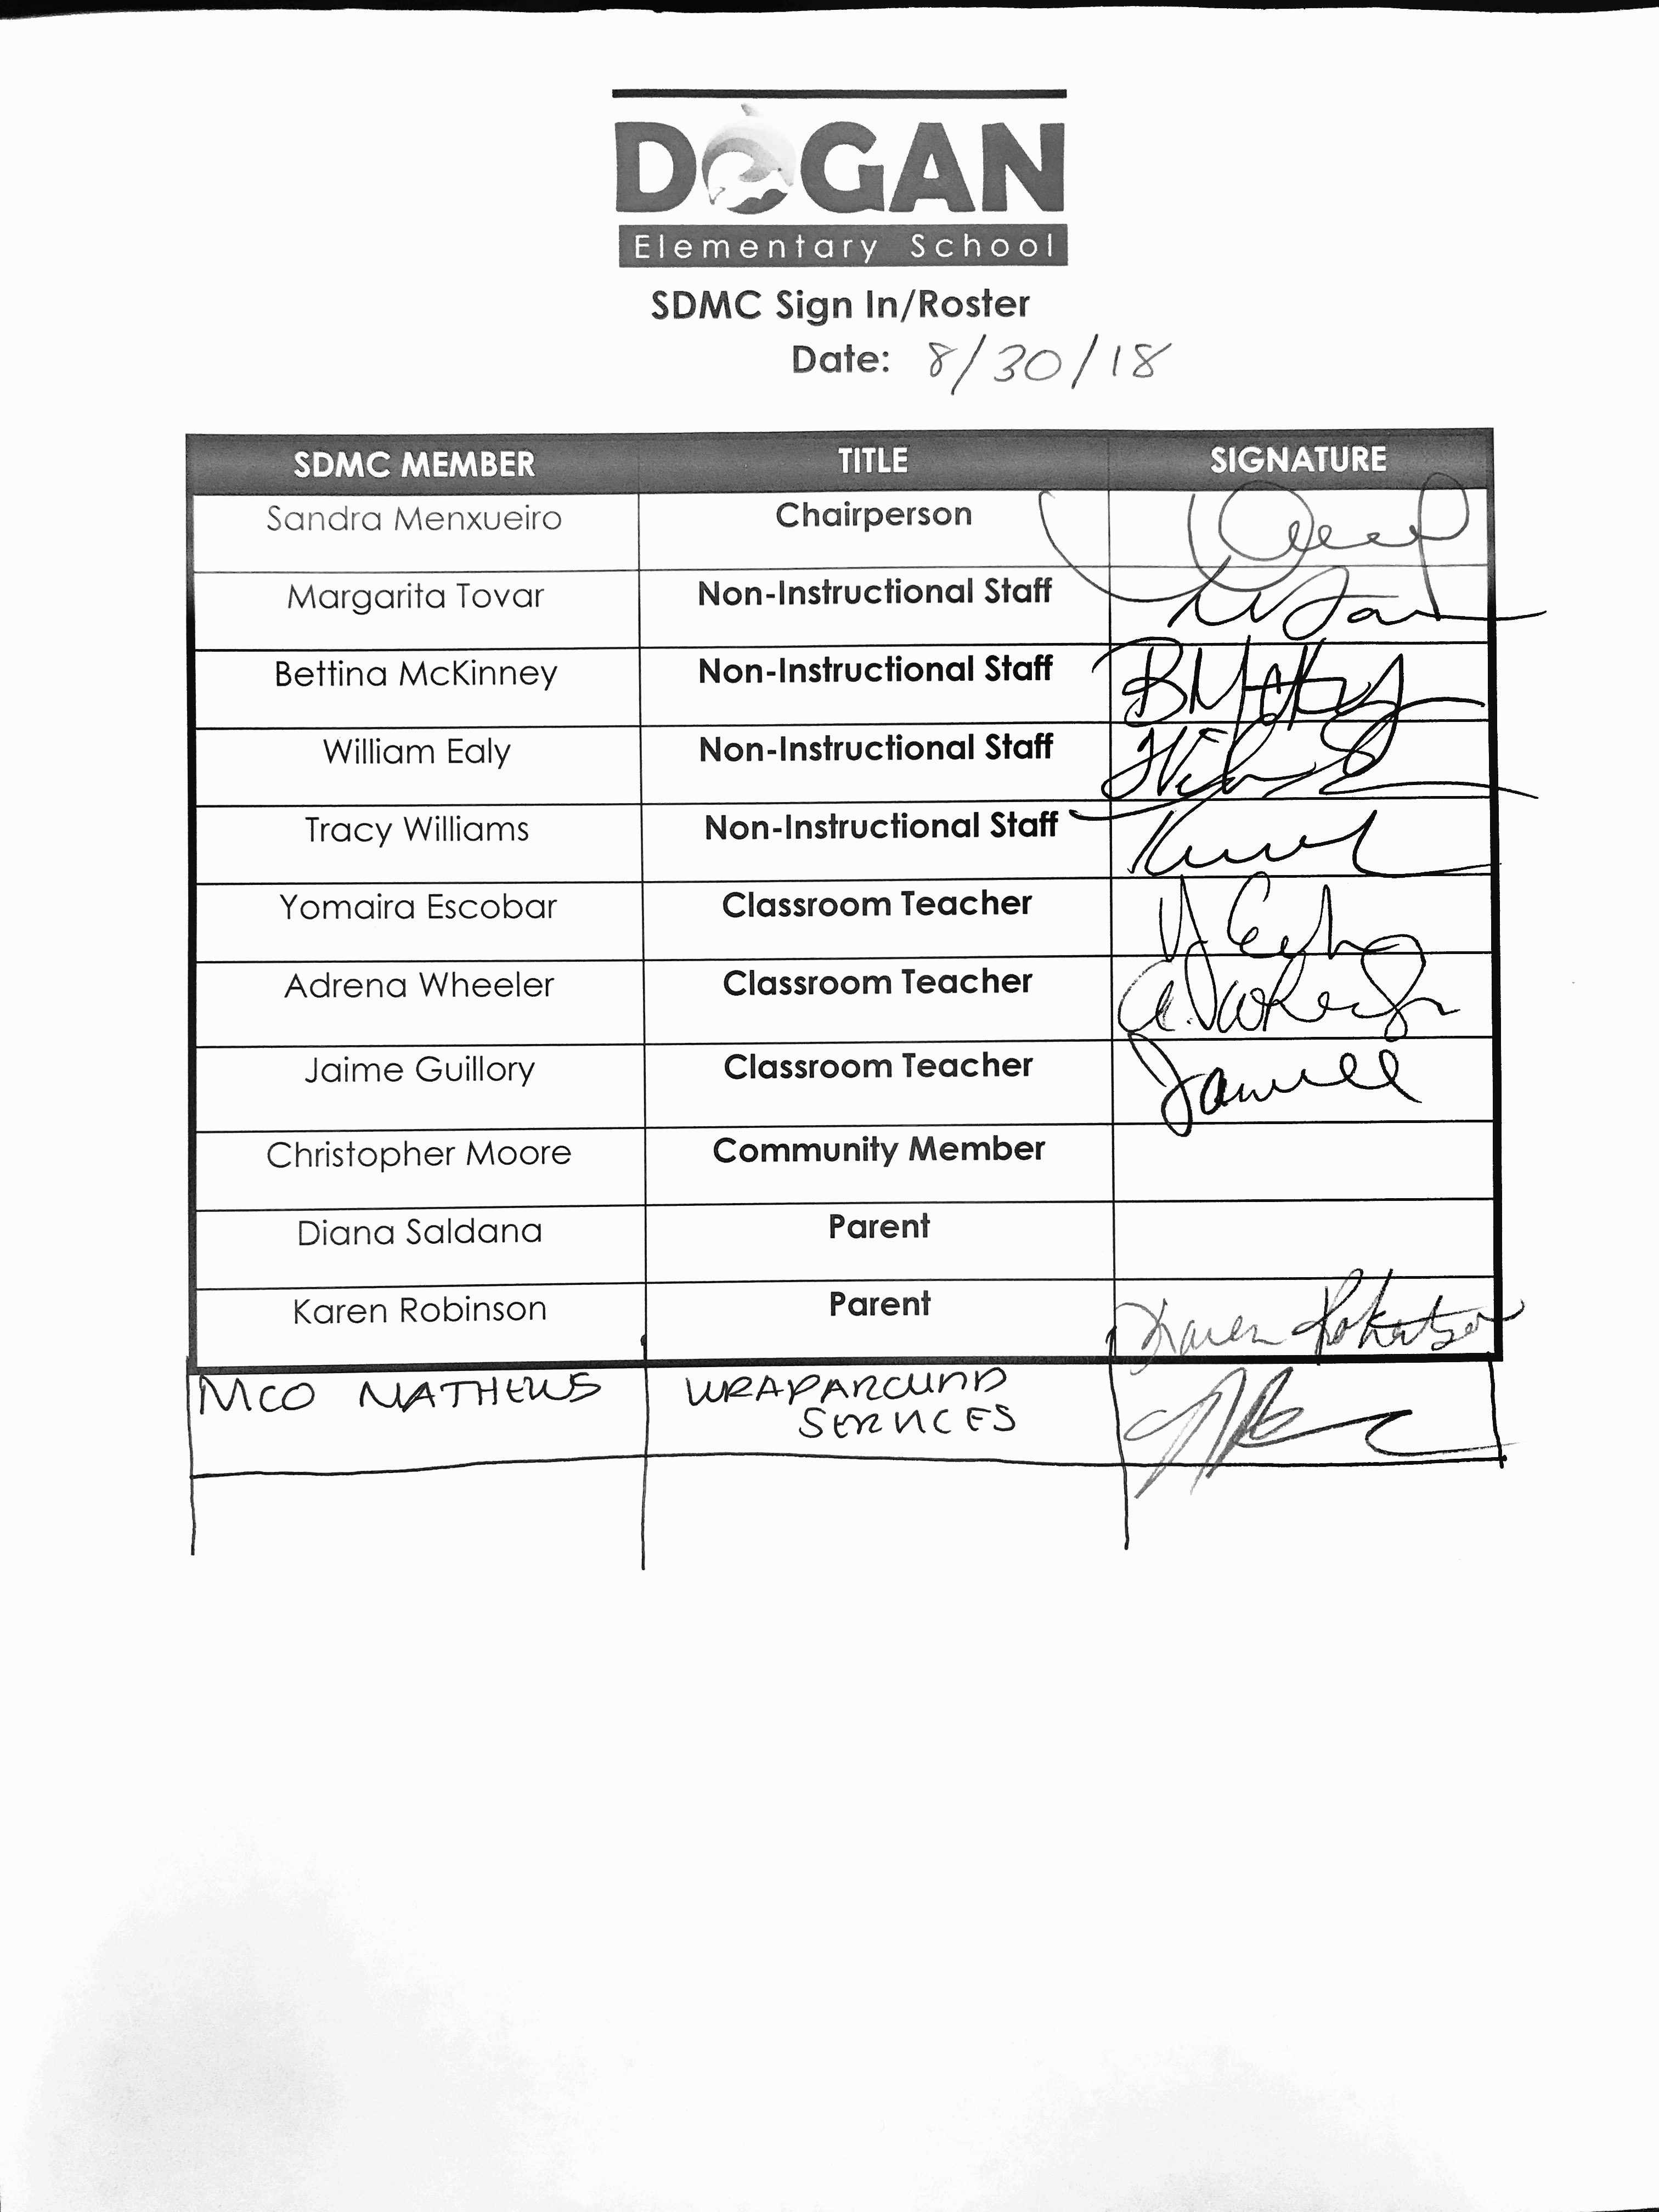 DOGAN
Elementary School
SDMC Sign In/Roster
Date: 8/30/18
SDMC MEMBER TITLE SIGNATURE
Sandra Menxueiro Chairperson
Margarita Tovar Non-Instructional Staff
Bettina McKinney Non-Instructional Staff
William Ealy Non-Instructional Staff
Tracy Williams Non-Instructional Staff
Yomaira Escobar Classroom Teacher
Adrena Wheeler Classroom Teacher
Jaime Guillory Classroom Teacher
Christopher Moore Community Member
Diana Saldana Parent
Karen Robinson Parent Karen Robertson
MATHEWS WRAPAROUND
SERVICES